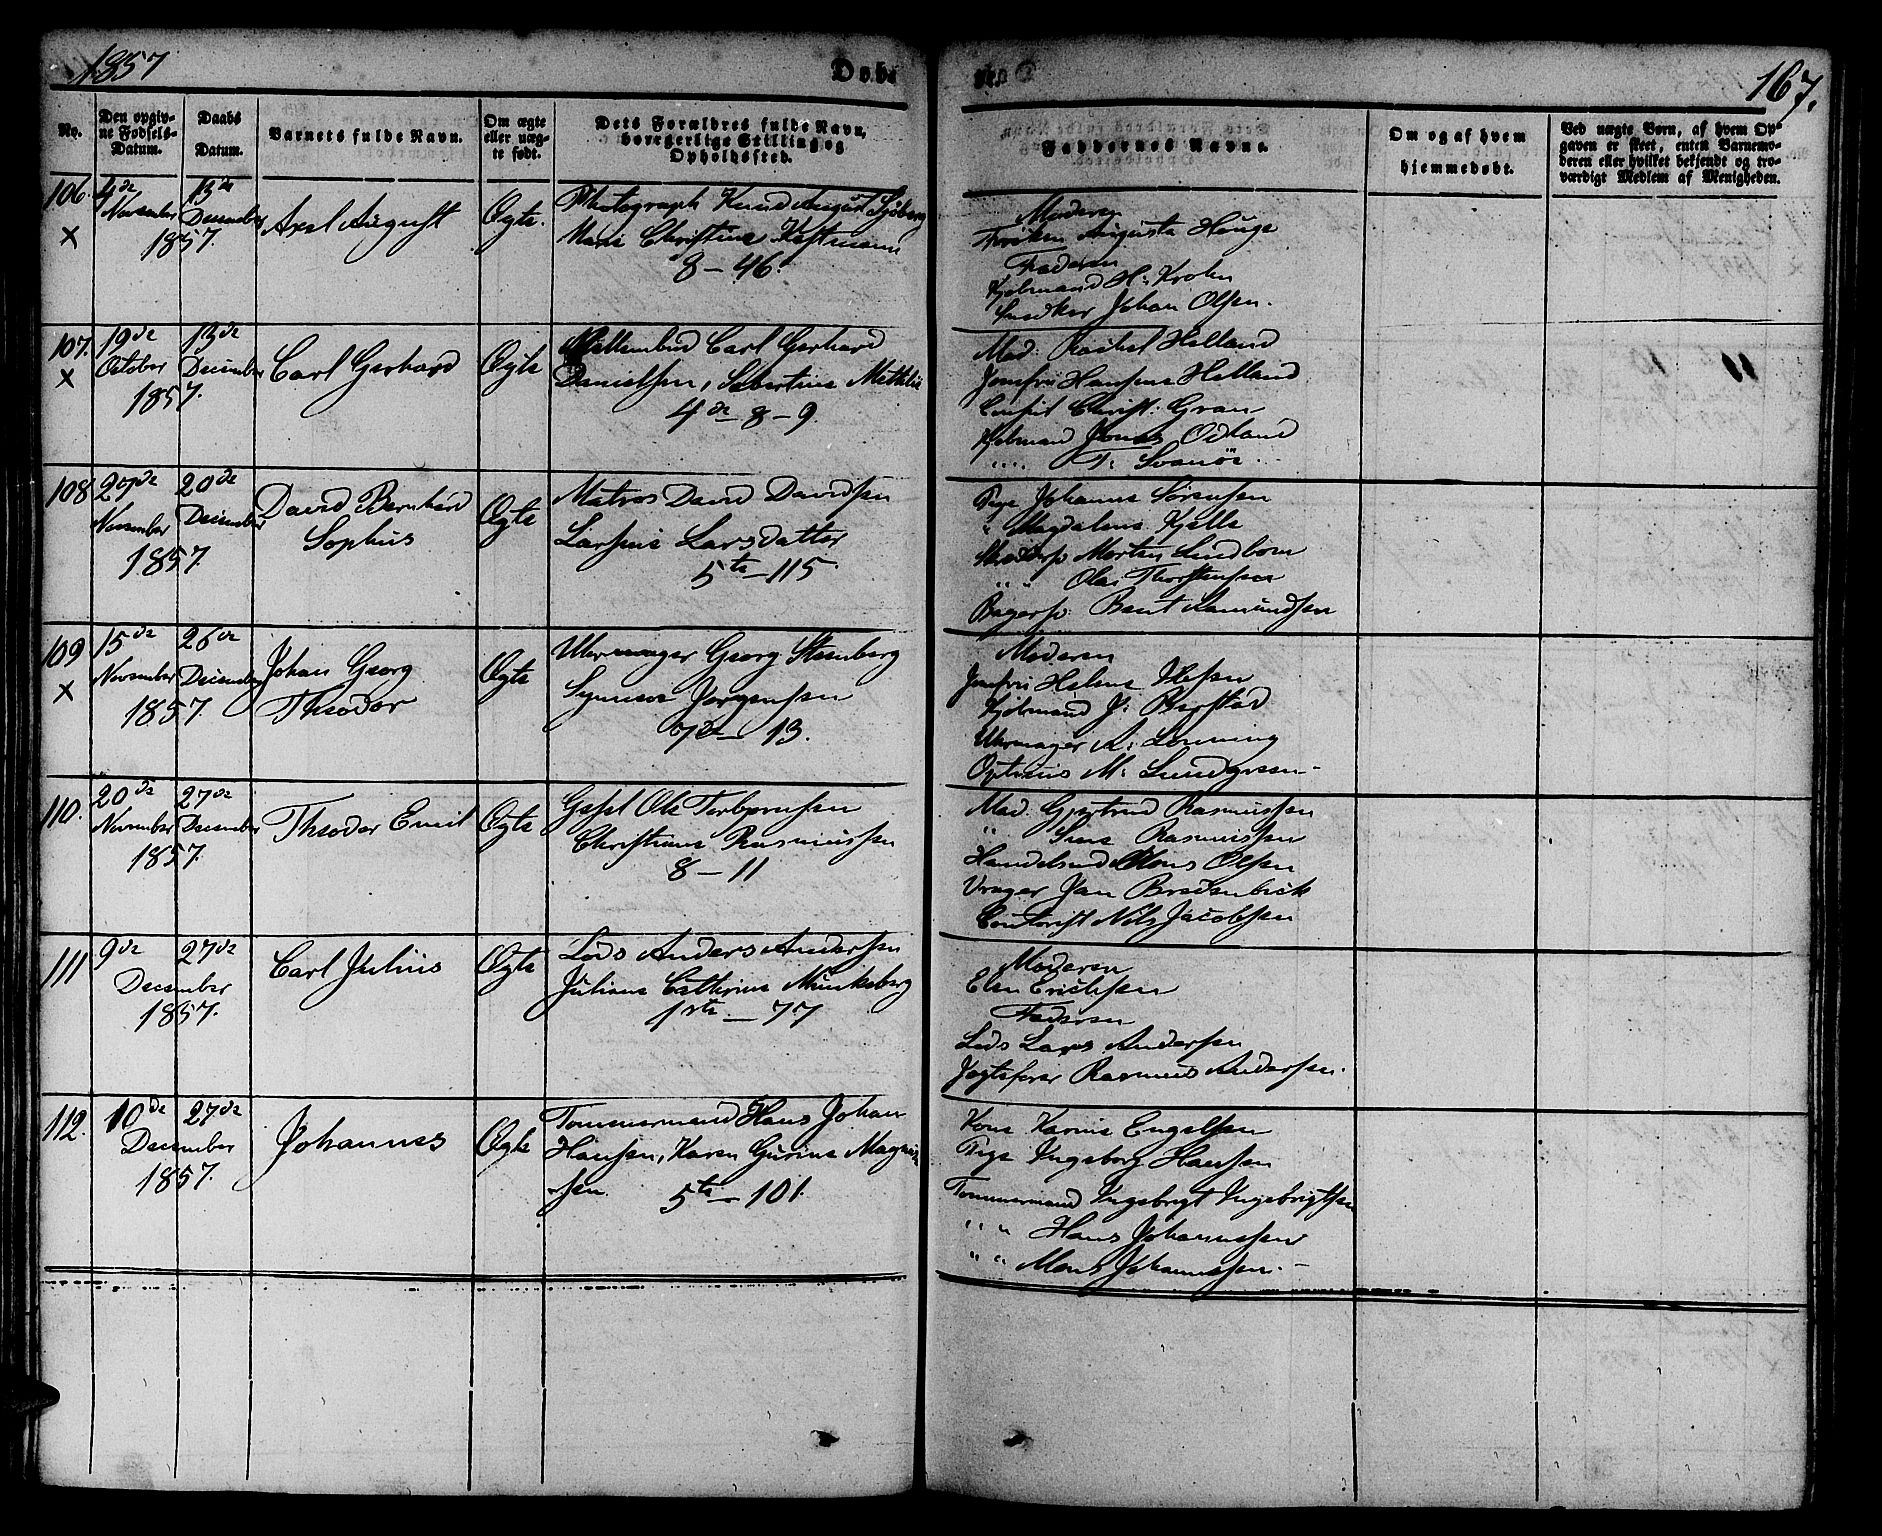 1857
Døbte
167.
No.
Den opgivne Fødsels-Datum.
Daabs Datum.
Barnets fulde Navn.
Om ægte eller uægte født.
Dets Forældres fulde Navn, borgerlige Stilling og Opholdssted.
Faddernes Navne.
Om og af hvem hjemmedøbt.
Ved uægte Børn, af hvem Opgaven er skeet, enten Barnemoderen eller hvilket bekjendt og troværdigt Medlem af Menigheden.
106. × 4de November 13de December 1857.
Axel August
Ægte.
Photograph Knud August Sjöberg
Christine
8 – 46.
Moderen
Frøken Augusta Houge
Faderen
Kjøbmand H: Krohn
Snedker Johan Olsen.
107. × 19de October 13de December 1857.
Carl Gerhard
Ægte
Carl Gerhard
Danielsen, Sibertine Mathilde
4de 8 – 9.
Mad: Rachel Helland
Jomfru Hansine Helland
Christ: Gran
Kjøbmand Jonas Ødland
" " T: Svanøe
108 27de November 20de December 1857.
David Bernhard
Sophus
Ægte
Matros David Davidsen
Larsine Larsdatter
5te – 115.
Pige Johanne Sørensen
" Magdalene Kjelle
Morten Lindbom
" " Olai Thorstensen
Bagersv: Bent Amundsen
109 × 15de November 26de December 1857.
Johan Georg
Theodor
Ægte
Uhrmager Georg Stenberg
Synneve Jørgensen
7de – 13.
Moderen
Jomfru Helene Ilesen
Kjøbmand J: Berstad
Uhrmager A: Lönning
Opticus M: Lundgreen –
110. 20de November 27de December 1857.
Theodor Emil
Ægte
Gesel Ole Torbjørnsen
Christiane Rasmussen
8 – 11
Mad: Gjertrud Rasmussen
" Sine Rasmussen
Handelsmd Mons Olsen
Vrager Jan Bredenbeck
Contorist Nils Jacobsen
111 9de 27de December 1857.
Carl Julius
Ægte
Lods Anders Andersen
Juliane Cathrine Munkeberg
1ste – 77
Moderen
Elen Ericksen
Faderen
Lods Lars Andersen
Jagtefører Rasmus Andersen.
112. 10de 27de December 1857.
Johannes
Ægte
Tømmermand Hans Johan
Hansen, Karen Gurine Magnus-
sen. 5te – 101.
Kone Karine Engelsen
Pige Ingeborg Hansen
Tømmermand Ingebrigt Ingebrigtsen
" " Hans Johannessen
" " Mons Johannessen. –